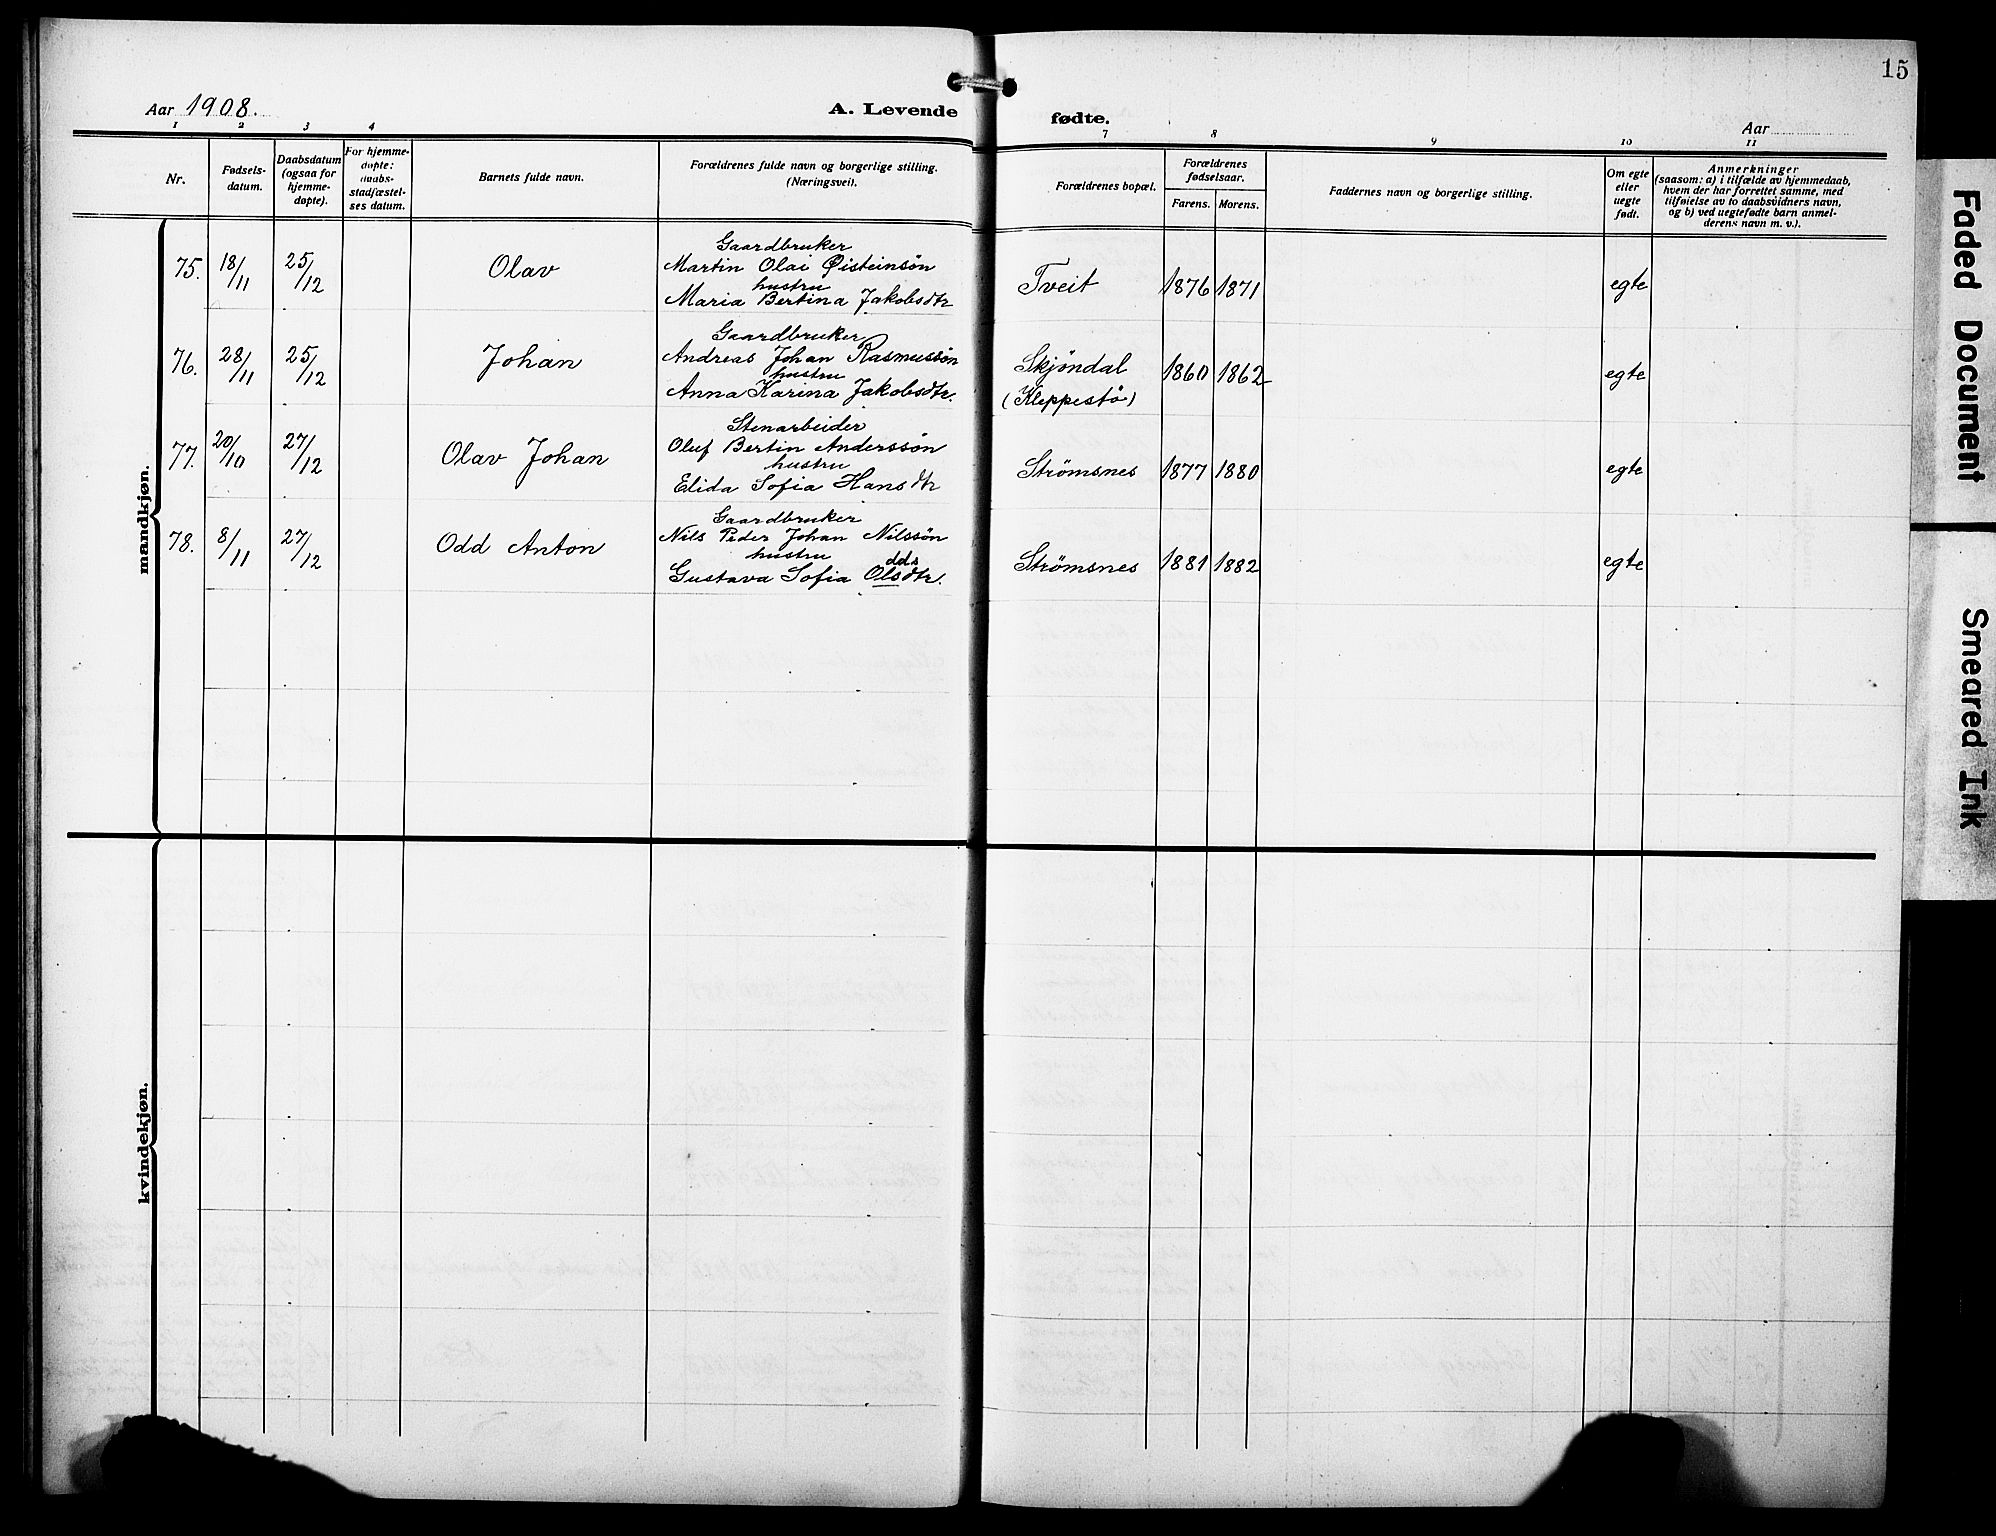 15
Aar 1908.
A. Levende fødte.
Aar
1 2 3 4 7 8 9 10 11
Nr.
Fødsels-
datum.
Daabsdatum
(ogsaa for
hjemme-
døpte).
For hjemme-
døpte:
daabs-
stadfæstel-
ses datum.
Barnets fulde navn.
Forældrenes fulde navn og borgerlige stilling.
(Næringsvei).
Forældrenes bopæl.
Forældrenes
fødselsaar.
Farens. Morens.
Faddernes navn og borgerlige stilling.
Om egte
eller
uegte
født.
Anmerkninger
(saasom: a) i tilfælde av hjemmedaab,
hvem der har forrettet samme, med
tilføielse av to daabsvidners navn,
og b) ved uegtefødte barn anmel-
derens navn m. v.).
mandkjøn.
75. 18/11 25/12 Olav
Gaardbruker
Martin Olai Øisteinsøn
hustru
Maria Bertina Jakobsdtr
Tveit 1876 1871 egte
76. 28/11 25/12 Johan
Gaardbruker
Andreas Johan Rasmussøn
hustru
Anna Karina Jakobsdtr.
Skjöndal
(Kleppestö)
1860 1862 egte
77. 20/10 27/12 Olav Johan
Stenarbeider
Oluf Bertin Anderssøn
hustru
Elida Sofia Hansdtr
Strömsnes 1877 1880 egte
78. 8/11 27/12 Odd Anton
Gaardbruker
Nils Peder Johan Nilssön
hustru
dds
Gustava Sofia Olsdtr.
Strömsnes 1881 1882 egte
kvindekjøn.
Faded Document
Smeared Ink